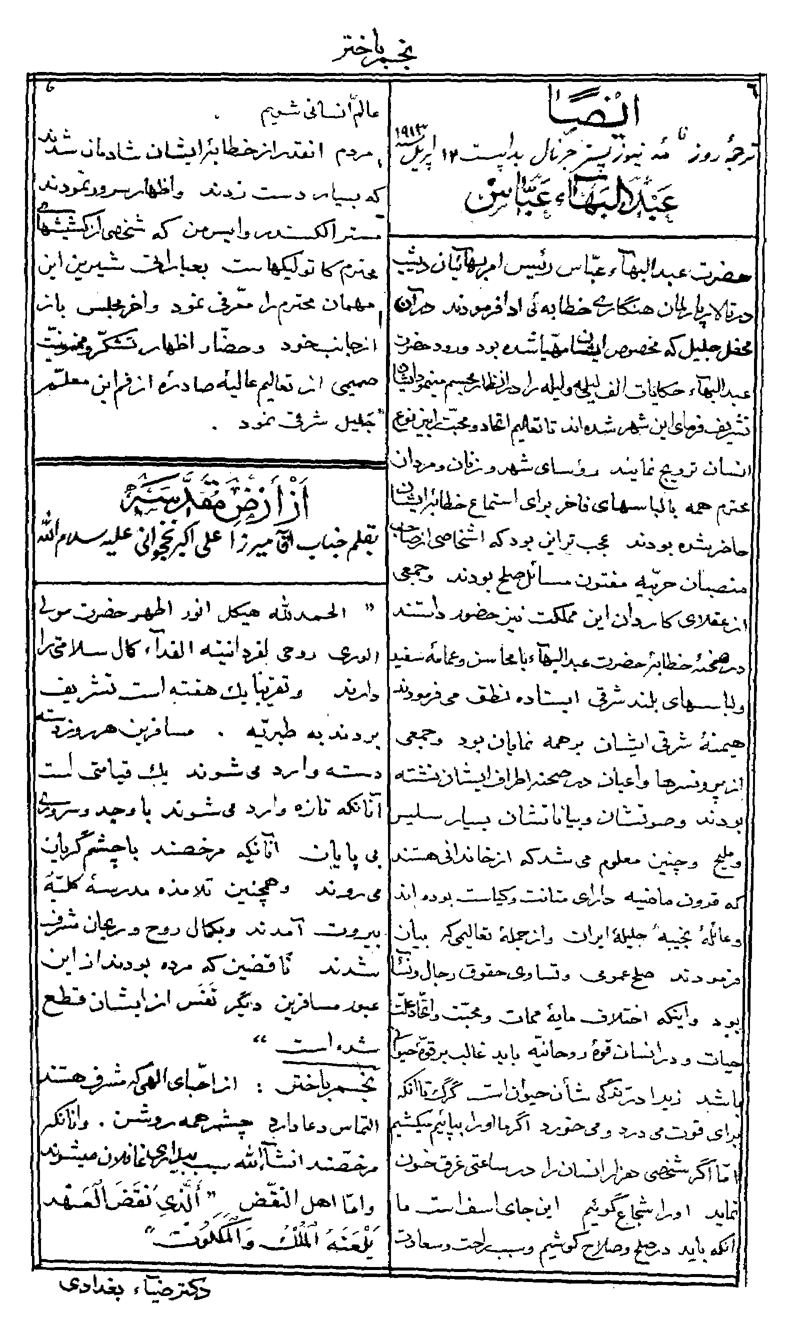 نجم باختر
٦
ایضًا
ترجمهٔ روزنامه نیوز پستر جرنال بداپست ١٢ اپریل سنه ١٩١٣
عبد البهآء عبّاس
حضرت عبدالبهآء عبّاس رئیس امر بهائیان دیشب
در تالار پارلمان هنگاری خطابه ئی ادا فرمودند در آن
محفل جلیل که مخصوص ایشان مهیّا شده بود ورود حضرت
عبدالبهآء حکایات الف لیله ولیله را در انظار مجسم مینمود ایشان
تشریف فرمای این شهر شده اند تا تعالیم اتحاد ومحبّت را بین نوع
انسان ترویج نمایند رؤسای شهر و زنان ومردان
محترم همه با لباسهای فاخر برای استماع خطابهٔ ایشان
حاضر شده بودند عجب تر این بود که اشخاصی از صاحب
منصبان حربیّه مفتون مسائل صلح بودند وجمعی
از عقلای کاردان این مملکت نیز حضور داشتند
در صحنهٔ خطابهٔ حضرت عبدالبهآء با محاسن وعمامهٔ سفید
ولباسهای بلند شرقی ایستاده نطق می فرمودند
هیمنهٔ شرقی ایشان بر همه نمایان بود وجمعی
از پروفسرها واعیان در صحنه اطراف ایشان نشسته
بودند وصوتشان وبیاناتشان بسیار سلیس
وملیح وچنین معلوم می شد که از خاندانی هستند
که قرون ماضیه دارای متانت وکیاست بوده اند
وعائلهٔ نجیبهٔ جلیلهٔ ایران واز جملهٔ تعالیمی که بیان
فرمودند صلح عمومی وتساوی حقوق رجال ونسآء
بود واینکه اختلاف مایهٔ ممات ومحبّت واتّحاد علّت
حیات و در انسان قوهٔ روحانیّه باید غالب بر قوهٔ حیوانی
باشد زیرا درندگی شأن حیوان است گرگ تا آنکه
برای قوت می درد و می خورد اگر ما او را بیابیم میکشیم
امّا اگر شخصی هزار انسان را در ساعتی غرق خون
نماید او را شجاع گوئیم این جای اسف است ما
آنکه باید در صلح وصلاح کوشیم وسبب راحت وسعادت
عالم انسانی شویم .
مردم انقدر از خطابهٔ ایشان شادمان شدند
که بسیار دست زدند واظهار سرور نمودند
مستر الکسندر وایس من که شخصی از کشیشهای
محترم کاتولیکهاست بعباراتی شیرین این
مهمان محترم را معرّفی نمود وآخر مجلس باز
از جانب خود وحضّار اظهار تشکّر وممنونیّت
صمیمی از تعالیم عالیهٔ صادره از فم این معلّم
جلیل شرقی نمود .
از أرض مقدّسه
بقلم جناب آقا میرزا علی اکبر نخجوانی علیه سلام الله
" الحمدلله هیکل انور اطهر حضرت مولی
الوری روحی لفردانیته الفدآء کمال سلامتی را
دارند وتقریبًا یک هفته است تشریف
بردند به طبریّه . مسافرین هر روز دسته
دسته وارد می شوند یک قیامتی است
آنانکه تازه وارد می شوند با وجد وسروری
بی پایان آنانکه مرخصند با چشم گریان
می روند وهمچنین تلامذه مدرسهٔ کلیّهٔ
بیروت آمدند وبکمال روح وریحان مشرف
شدند ناقضین که مرده بودند از این
عبور مسافرین دیگر نَفَس از ایشان قطع
شده است "
نجم باختر : از احبای الهی که مشرف هستند
التماس دعا دارد چشم همه روشن . وآنانکه
مرخّصند انشآءالله سبب بیداری غافلان میشوند
وامّا اهل النقض " الّذی نَقَضَ العَهْد
یَلْعَنَهُ المُلْکُ وَالمَلَکُوت "
دکتر ضیاء بغدادی